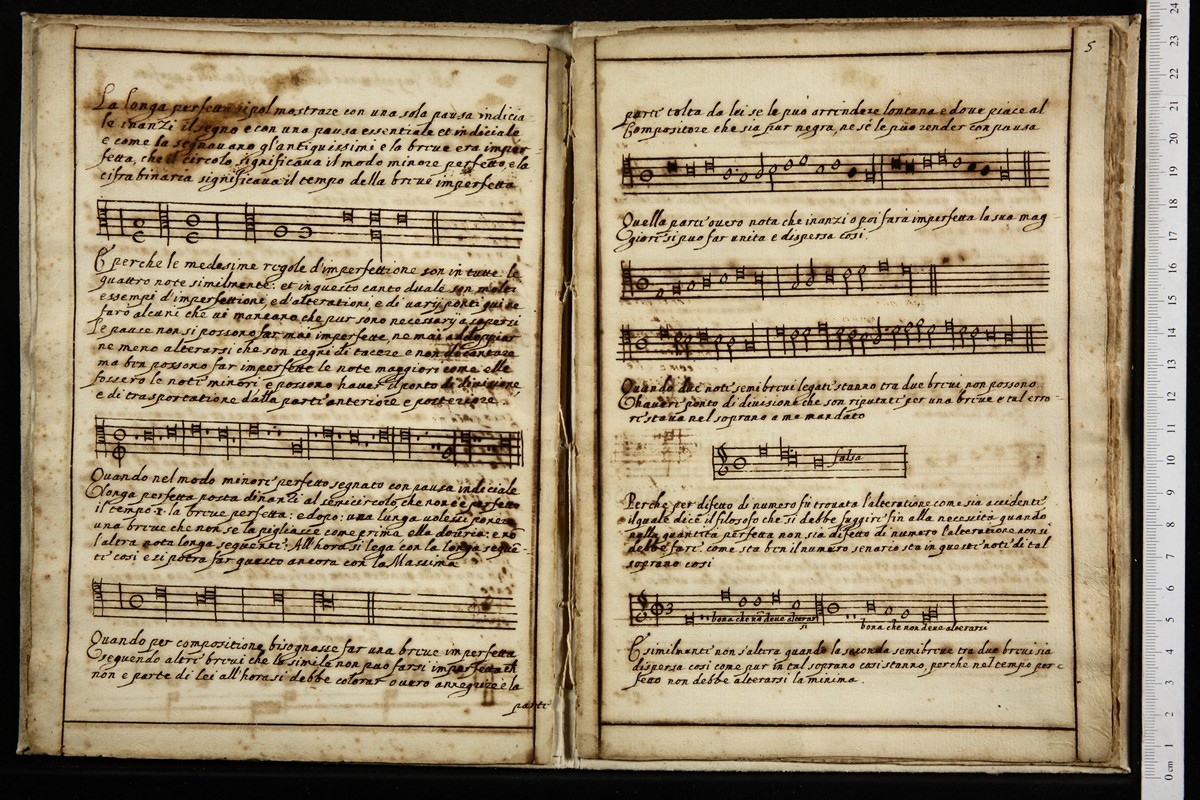 La longa perfetta si può mostrare con una sola pausa indicia-
le inanzi il segno e con una pausa essentiale et indiciale
e come la segnauano gl'antiquissimi e la breue era imper-
fetta, che il circolo significaua il modo minore perfetto, e la
cifra binaria significaua il tempo della breue imperfetta
E perche le medesime regole d'imperfettione son in tutte le
quattro note similmente: et in questo canto duale son molti
essempi d'imperfettione, e d'alterationi, e di uarij ponti qui ne
farò alcuni che ui mancano che pur sono necessarij a sapersi
Le pause non si possono far mai imperfette, ne mai
ne meno alterarsi che son segni di tacere e non di cantare
ma ben possono far imperfette le note maggiori come elle
fossero le note minori e possono hauer il ponto di diuisione,
e di trasportatione dalla parte anteriore e posteriore.
Quando nel modo minore perfetto segnato con pausa indiciale
longa perfetta posta dinanzi al semicircolo, che non è perfetto
il tempo la breue perfetta: e dopo: una lunga uolessi ponere
una breue che non se la pigliasse come prima ella douria: e nõ
l'altra nota longa seguente. All'hora si lega con la longa segue-
te così e si potrà far questo ancora con la Massima
Quando per compositione bisognasse far una breue imperfetta
seguendo altre breui che la simila non può farsi imperfetta
non e parte di lei all'hora si debbe colorar ouero annegrire e la
parte
5
parte tolta da lei se le può arrindere lontana e doue piace al
Compositore che sia pur negra, ne se le può render con pausa
Quella parte ouero nota che inanzi o poi farà imperfetta la sua mag-
giore si può far unita e dispersa così.
Quando due note semibreui legate stanno tra due breui non possono
hauere ponto di diuisione che son riputate per una breue e tal erro-
re staua nel soprano a me mandato
falsa
Perche per difetto di numero fu trouata l'alteratione come sia accidente
il quale dice il filosofo che si debbe fuggire fin alla necessità quando
nella quantità perfetta non sia difetto di numero l'alteratione non si
debbe fare. come sta ben il numero senario sta in queste note di tal
soprano così
bona che nõ deue alterarsi
bona che non deue alterarsi
E similmente non s'altra quando la seconda semibreue tra due breui sia
dispersa così come pur in tal soprano così stanno, perche nel tempo per-
fetto non debbe alterarsi la minima.